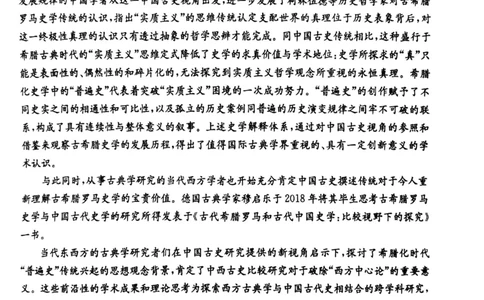 发展规律的中国学者从这一中国古史视角出发,进一步发展了柯林伍德等历史哲学家对古希腊
罗马史学传统的认识,指出“实质主义”的思维传统认定支配世界的真理位于历史表象背后,对
这一终极性真理的认识只有透过抽象的哲学思辨才能完成。同中国古史传统相比,这种盛行于
希腊古典时代的“实质主义”思维定式降低了史学的求真价值与学术地位:史学所探求的“真”只
能是表面性的、偶然性的和碎片化的,无法探究到实质主义哲学观念所重视的永恒真理。希腊
化史学中的“普遍史”代表着突破“实质主义”困境的一次成功努力。“普遍史”的创作赋予了不
同史实之间的相通性和可比性,以及孤立的历史案例同普遍的历史演变规律之间牢不可破的联
系,构成了具有连续性与整体意义的叙事。上述史学解释体系,通过对中国古史视角的参照和
借鉴来观察古希腊史学的发展历程,得出了值得国际古典学界重视的、具有一定创新意义的学
术认识。
与此同时,从事古典学研究的当代西方学者也开始充分肯定中国古史撰述传统对于今人重
新理解古希腊史学的宝贵价值。德国古典学家穆启乐于2018年将其毕生思考古希腊罗马
史学与中国古代史学的研究所得发表于《古代希腊罗马和古代中国史学:比较视野下的探究》
一书。
当代东西方的古典学研究者们在中国古史研究提供的新视角启示下,探讨了希腊化时代
“普遍史”传统兴起的思想观念背景,肯定了中西古史比较研究对于破除“西方中心论”的重要意
义。这些前沿性的学术成果和理论思考为探索西方古典学与中国古史相结合的跨学科研究,